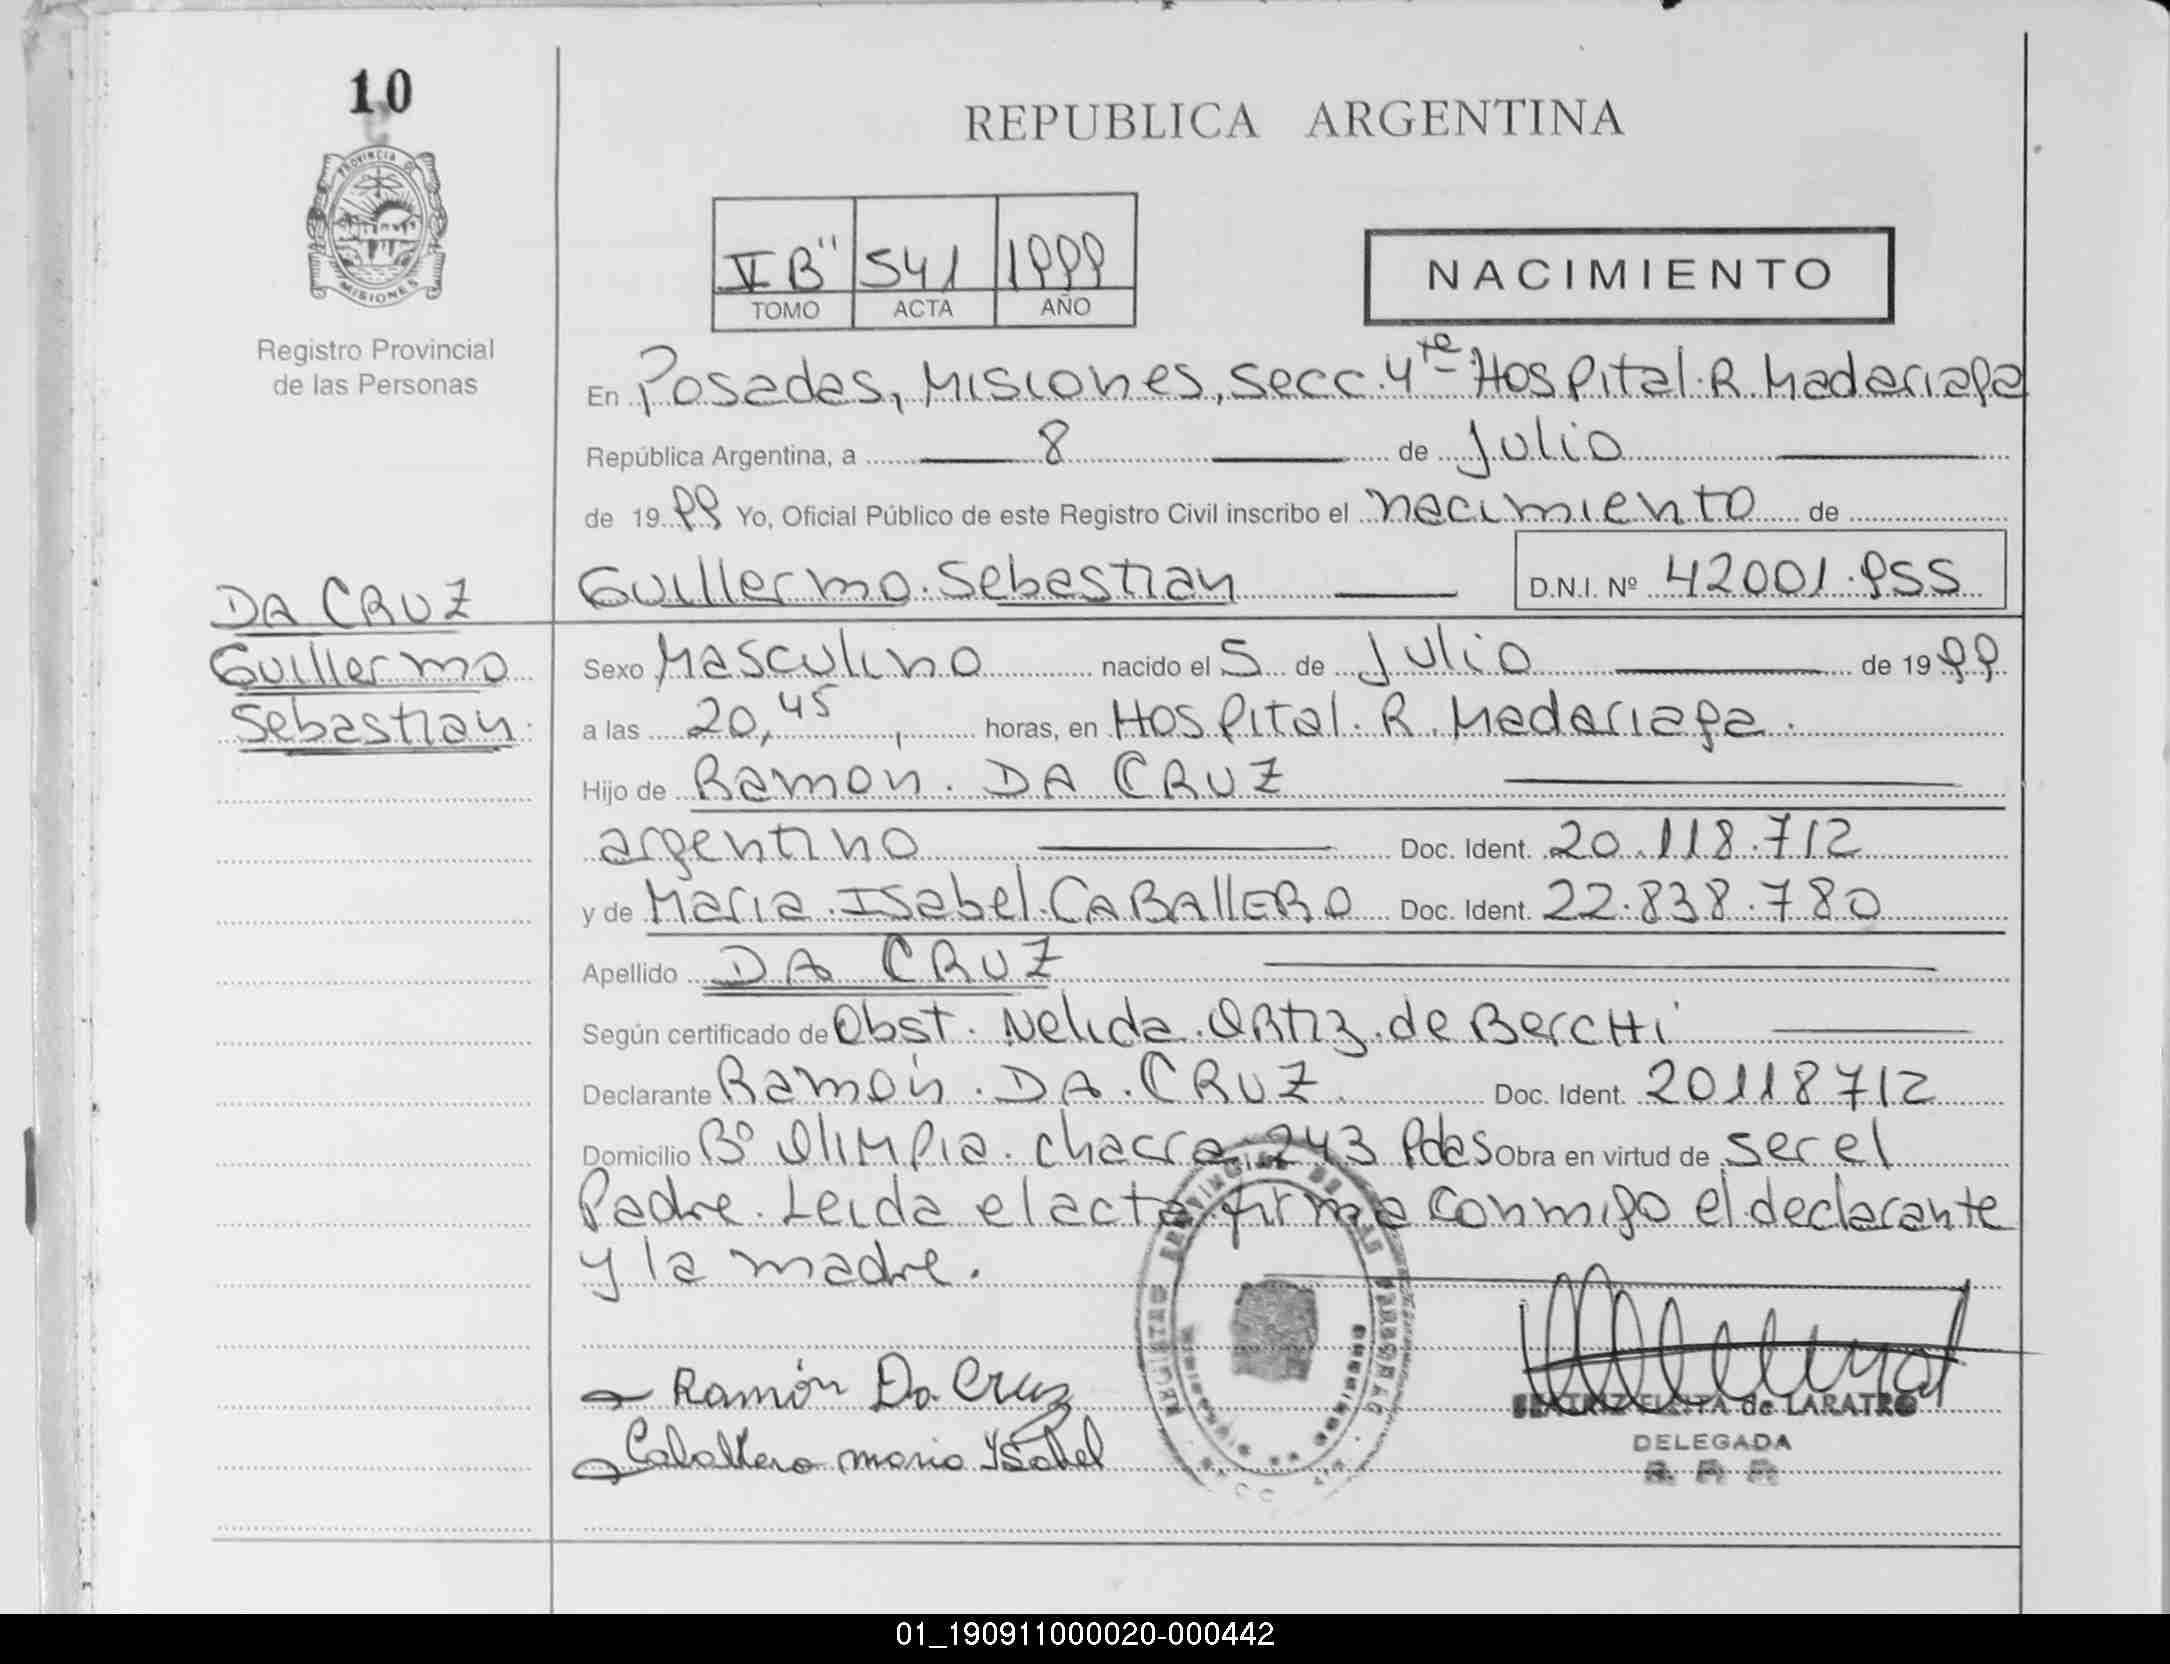 10
REPUBLICA ARGENTINA
PROVINCIA DE
MISIONES
Registro Provincial
de las Personas
V B" 541 1999
TOMO ACTA AÑO
NACIMIENTO
En Posadas, Misiones, Secc. 4ta Hospital R. Madariaga
República Argentina, a 8 de Julio
de 1999 Yo, Oficial Público de este Registro Civil inscribo el nacimiento de
Guillermo Sebastian D.N.I. Nº 42001.955
DA CRUZ
Guillermo
Sebastian
Sexo Masculino nacido el 5 de Julio de 1999
a las 20,45 horas, en Hospital R. Madariaga.
Hijo de Ramon DA CRUZ
argentino Doc. Ident. 20.118.712
y de Maria Isabel CABAllERO Doc. Ident. 22.838.780
Apellido DA CRUZ
Según certificado de Obst. Nelida ORtiz de BercHi
Declarante Ramón DA CRUZ Doc. Ident. 20118712
Domicilio Bº OliMPia chacra 243 Pdas Obra en virtud de ser el
Padre. Leida el acta firma conmigo el declarante
y la madre.
Ramón Da Cruz
Caballero maria Ysabel
REGISTRO PROVINCIAL DE LAS PERSONAS
de LARATRO
DELEGADA
01_190911000020-000442